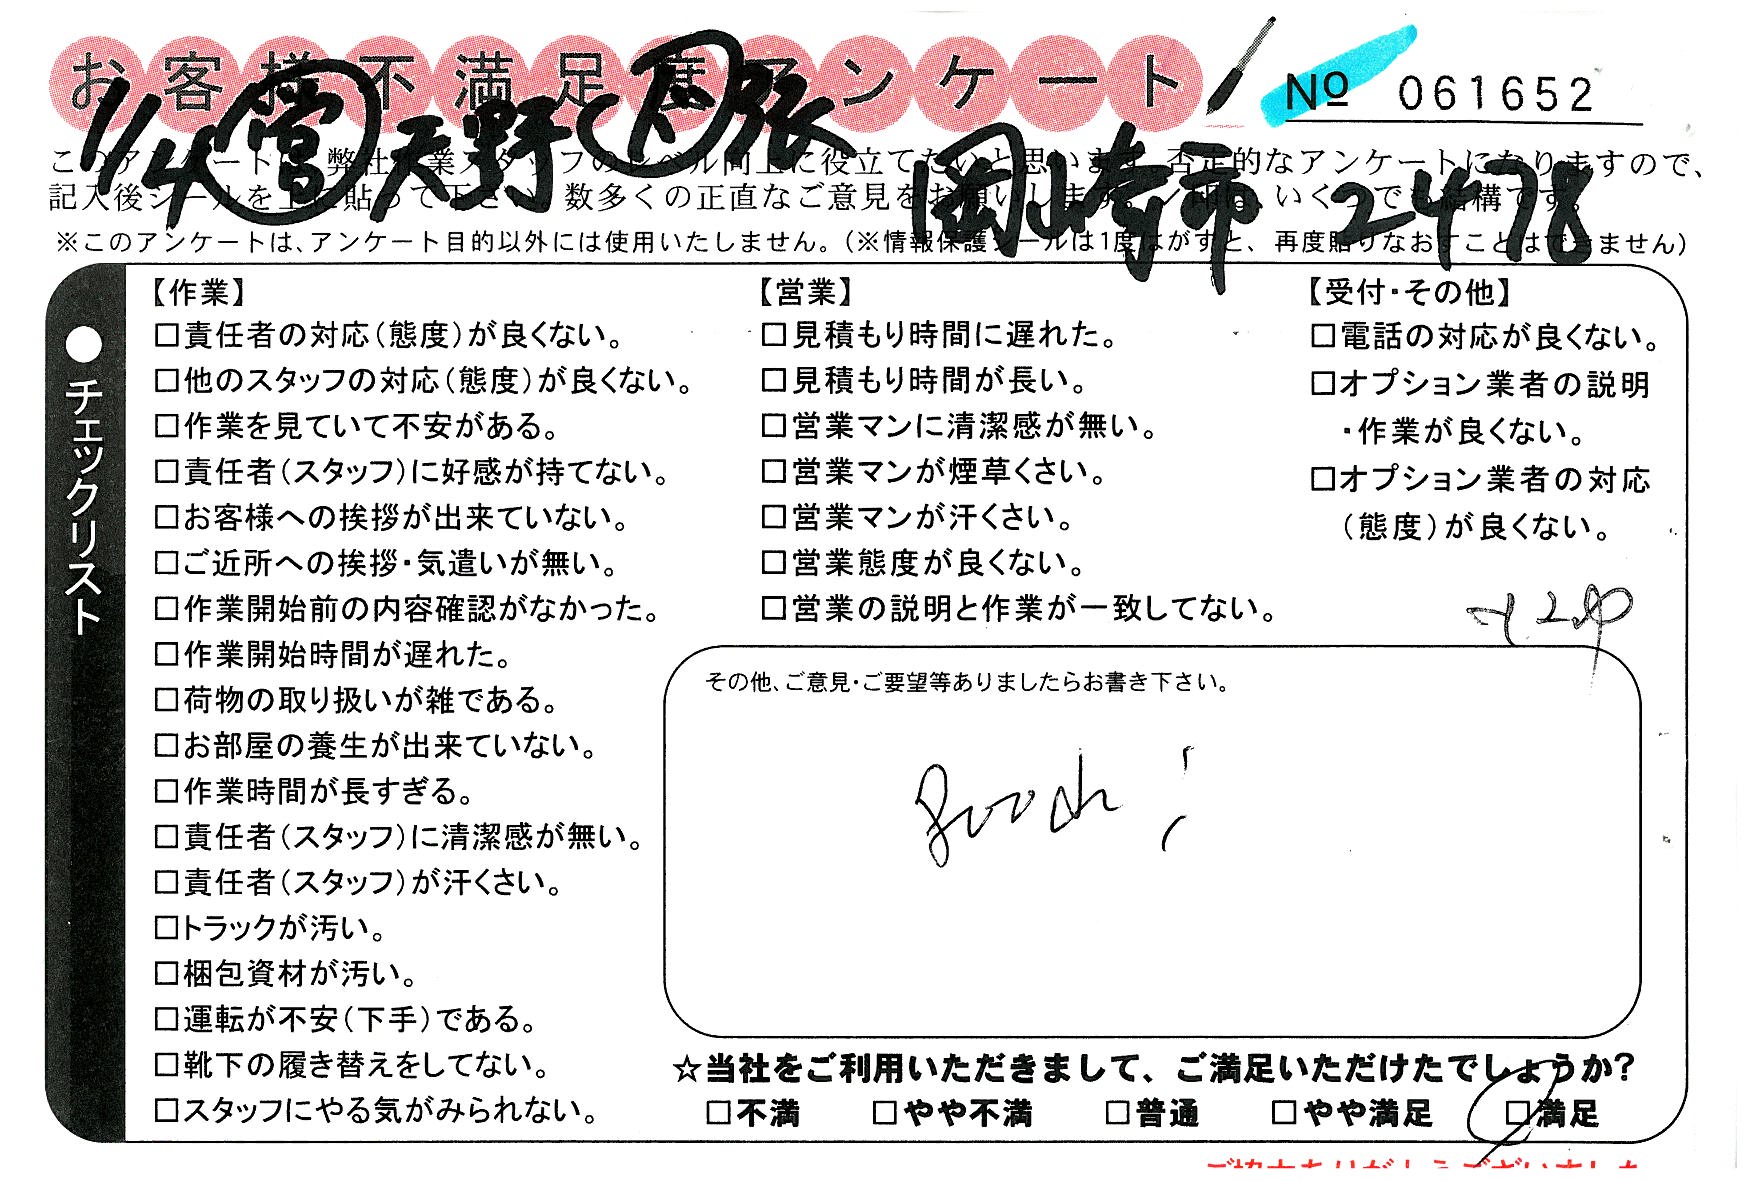 お客様不満足度アンケート
№ 061652
1/4 営 天野 下 張
岡崎市 2478
このアンケートは、弊社作業スタッフのレベル向上に役立てたいと思います。否定的なアンケートになりますので、
記入後シールを上に貼って下さい。数多くの正直なご意見をお願いします。／印は、いくつでも結構です。
※このアンケートは、アンケート目的以外には使用いたしません。（※情報保護シールは1度はがすと、再度貼りなおすことはできません）
●チェックリスト
【作業】
□責任者の対応（態度）が良くない。
□他のスタッフの対応（態度）が良くない。
□作業を見ていて不安がある。
□責任者（スタッフ）に好感が持てない。
□お客様への挨拶が出来ていない。
□ご近所への挨拶・気遣いが無い。
□作業開始前の内容確認がなかった。
□作業開始時間が遅れた。
□荷物の取り扱いが雑である。
□お部屋の養生が出来ていない。
□作業時間が長すぎる。
□責任者（スタッフ）に清潔感が無い。
□責任者（スタッフ）が汗くさい。
□トラックが汚い。
□梱包資材が汚い。
□運転が不安（下手）である。
□靴下の履き替えをしてない。
□スタッフにやる気がみられない。
【営業】
□見積もり時間に遅れた。
□見積もり時間が長い。
□営業マンに清潔感が無い。
□営業マンが煙草くさい。
□営業マンが汗くさい。
□営業態度が良くない。
□営業の説明と作業が一致してない。
【受付・その他】
□電話の対応が良くない。
□オプション業者の説明
・作業が良くない。
□オプション業者の対応
（態度）が良くない。
その他、ご意見・ご要望等ありましたらお書き下さい。
good!
☆当社をご利用いただきまして、ご満足いただけたでしょうか？
□不満 □やや不満 □普通 □やや満足 □満足
ご協力ありがとうございました